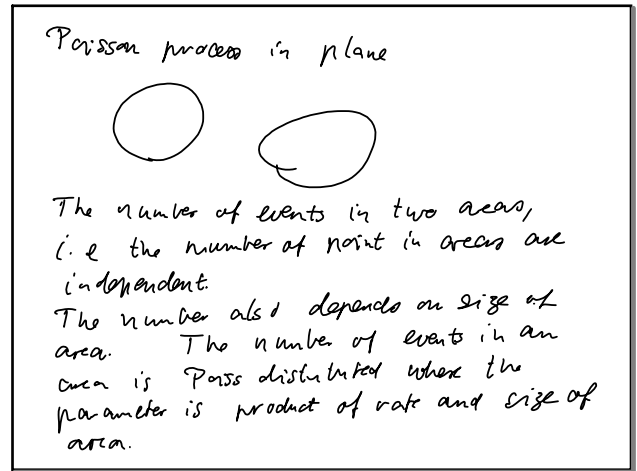 Poisson process in plane
The number of events in two areas,
i.e the number of point in areas are
independent.
The number also depends on size of
area. The number of events in an
area is Poiss distributed where the
parameter is product of rate and size of
area.